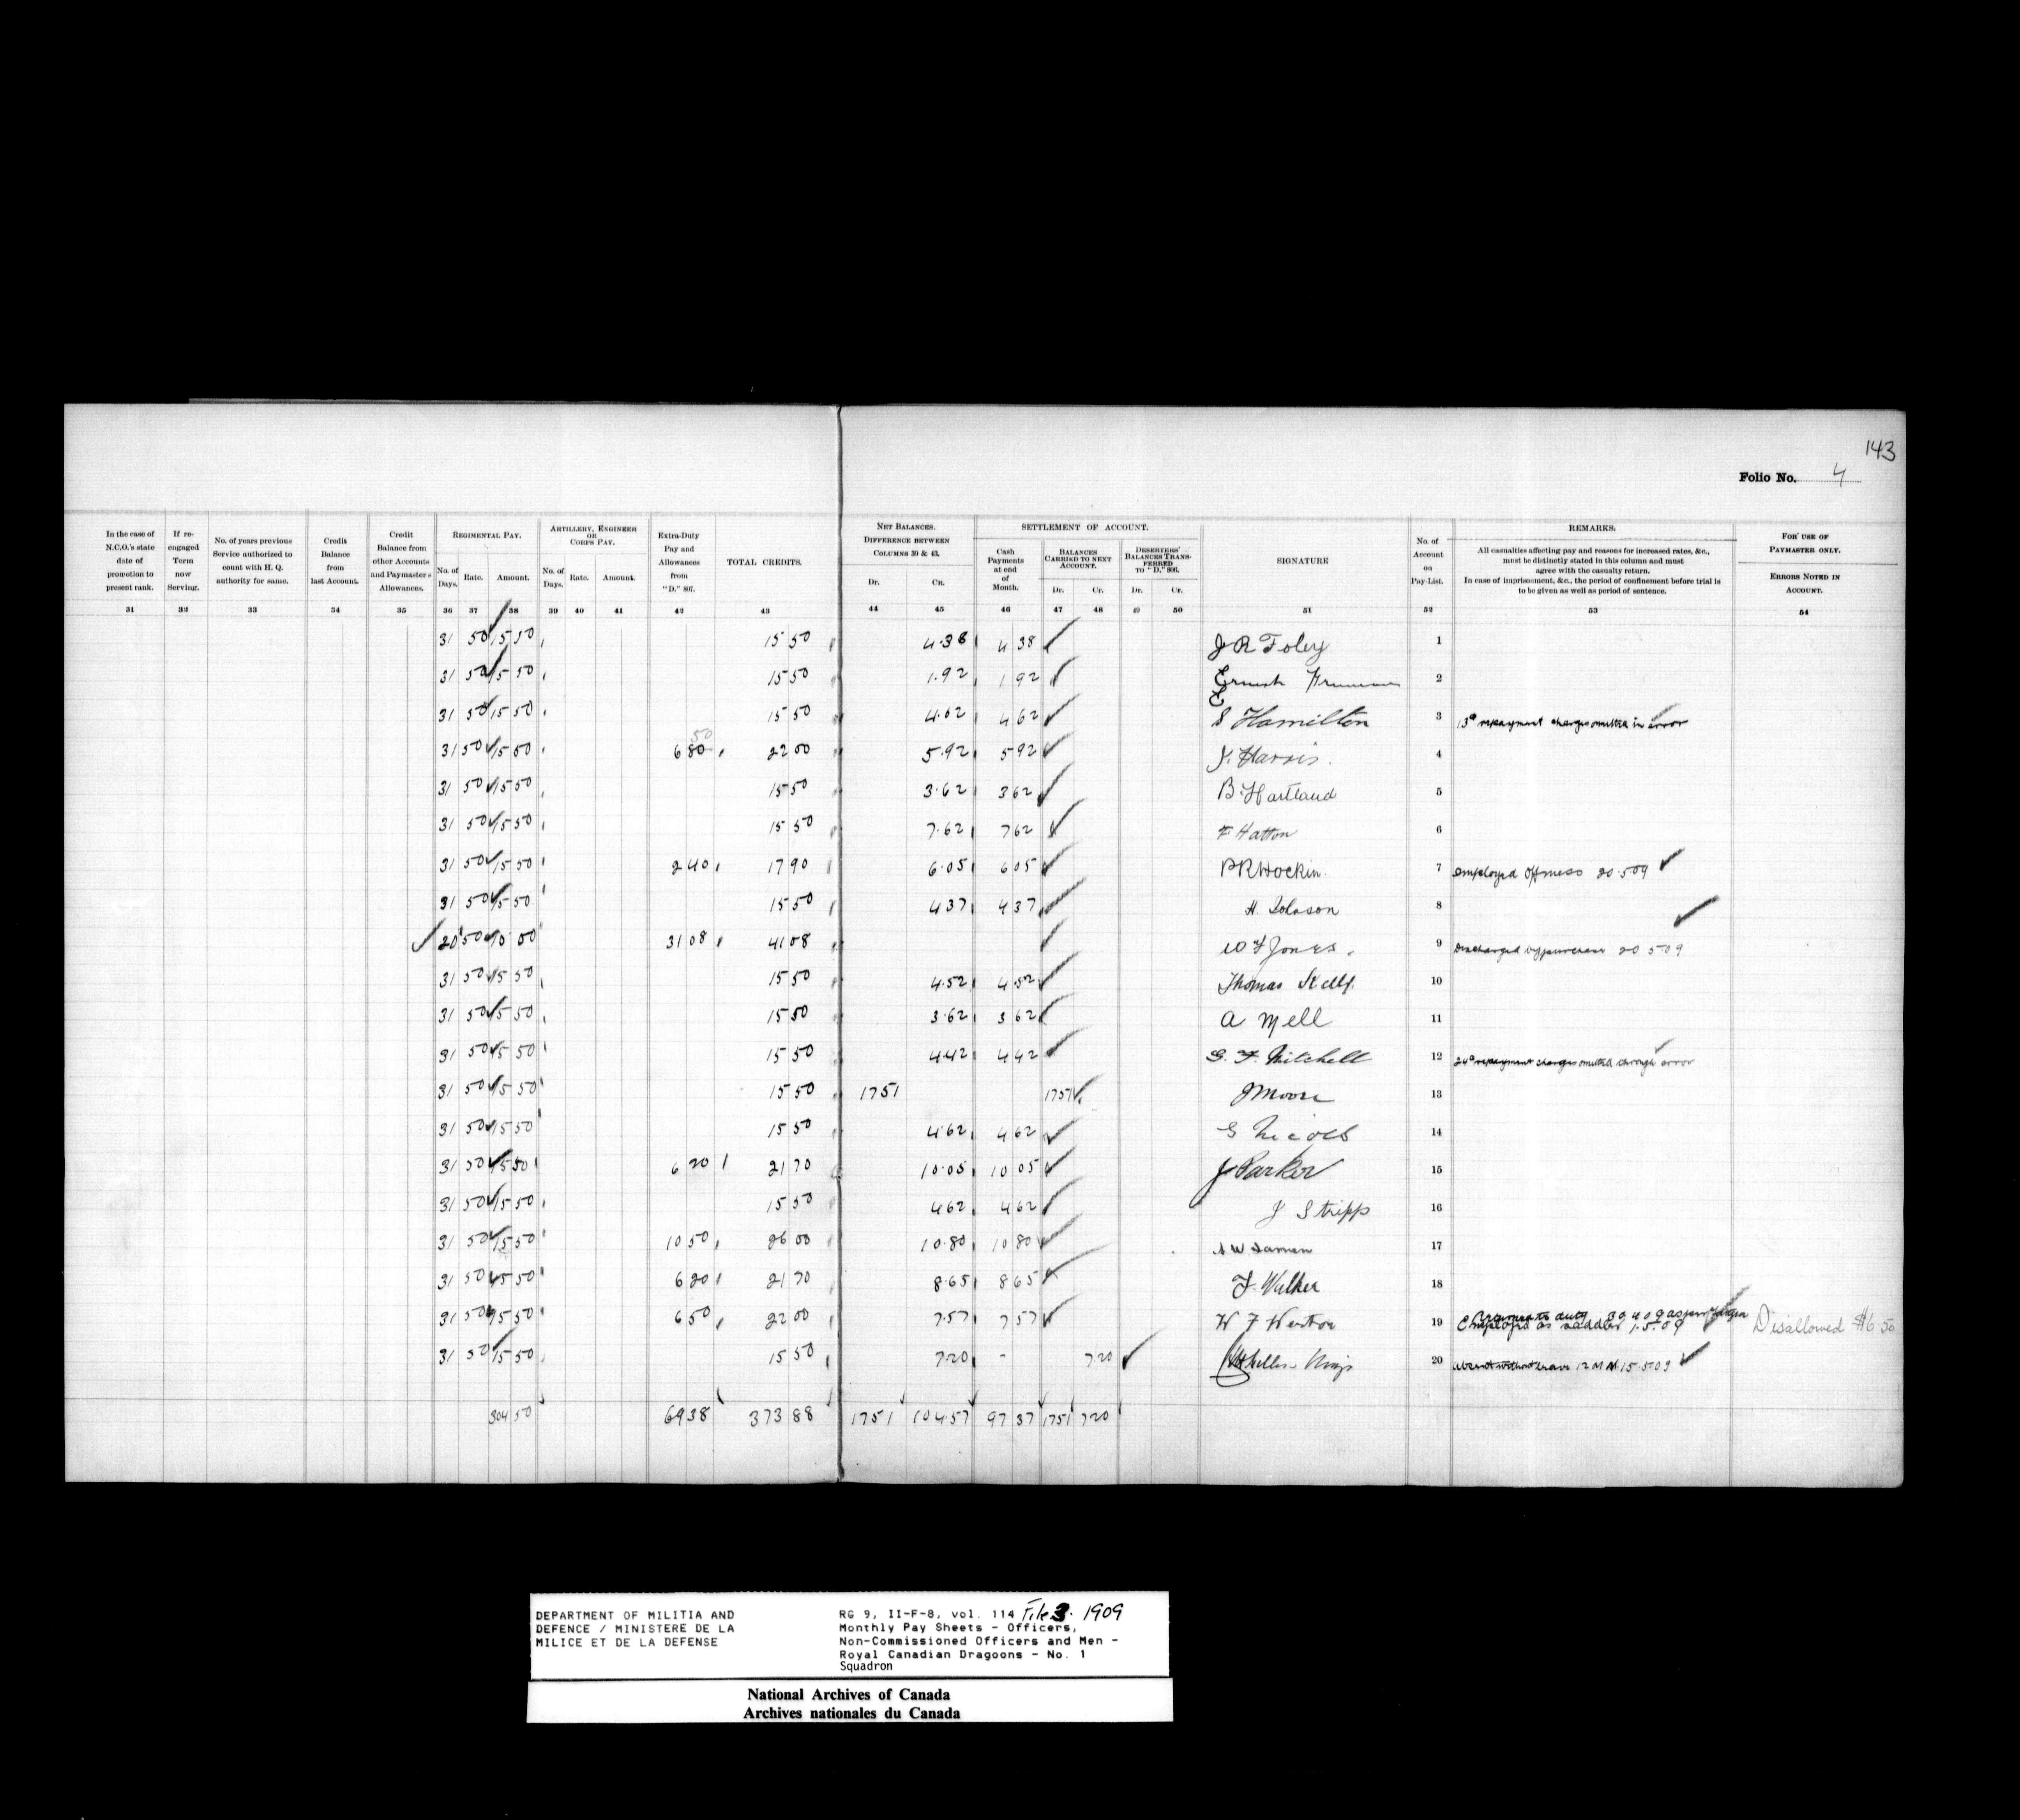 143
Folio No. 4
In the case of N.C.O.'s state date of promotion to present rank.
If re-engaged Term now Serving.
No. of years previous Service authorized to count with H. Q. authority for same.
Credit Balance from last Account.
Credit Balance from other Accounts and Paymaster's Allowances.
REGIMENTAL PAY.
No. of Days. Rate. Amount.
ARTILLERY, ENGINEER OR CORPS PAY.
No. of Days. Rate. Amount.
Extra-Duty Pay and Allowances from "D." 807.
TOTAL CREDITS.
NET BALANCES.
DIFFERENCE BETWEEN COLUMNS 30 & 43.
Dr. Cr.
SETTLEMENT OF ACCOUNT.
Cash Payments at end of Month.
BALANCES CARRIED TO NEXT ACCOUNT.
Dr. Cr.
DESERTERS' BALANCES TRANSFERRED TO "D." 806.
Dr. Cr.
SIGNATURE
No. of Account on Pay-List.
REMARKS.
All casualties affecting pay and reasons for increased rates, &c., must be distinctly stated in this column and must agree with the casualty return.
In case of imprisonment, &c., the period of confinement before trial is to be given as well as period of sentence.
FOR USE OF PAYMASTER ONLY.
ERRORS NOTED IN ACCOUNT.
31 32 33 34 35 36 37 38 39 40 41 42 43 44 45 46 47 48 49 50 51 52 53 54
31 50 15 50 15 50 4.38 4 38 J R Foley 1
31 50 15 50 15 50 1.92 1 92 Ernest 2
31 50 15 50 15 50 4.62 4 62 E S Hamilton 3 repayment charges omitted in error
50
31 50 15 50 6 80 22 00 5.92 5 92 J. Harris. 4
31 50 15 50 15 50 3.62 3 62 B. Hartland 5
31 50 15 50 15 50 7.62 7 62 F Hatton 6
31 50 15 50 2 40 17 90 6.05 6 05 P R Hockin. 7 employed Off mess 20 5 09
31 50 15 50 15 50 4 37 4 37 H. Johnson 8
20 50 10 00 31 08 41 08 W F Jones. 9 Discharged by purchase 20 5 09
31 50 15 50 15 50 4.52 4.52 Thomas Kelly. 10
31 50 15 50 15 50 3.62 3 62 A Mell 11
31 50 15 50 15 50 4.42 4 42 G. F. Mitchell 12 repayment charges omitted through error
31 50 15 50 15 50 17 51 17 51 J Moore 13
31 50 15 50 15 50 4.62 4 62 G Nicols 14
31 50 15 50 6 20 21 70 10.05 10 05 J Parker 15
31 50 15 50 15 50 4 62 4 62 J Stripps 16
31 50 15 50 10 50 26 00 10.80 10 80 17
31 50 15 50 6 20 21 70 8.65 8 65 F. Walker 18
31 50 15 50 6 50 22 00 7.57 7 57 W F 19 to duty 30 4 09 as per Disallowed $6.50
Employed as saddler 1.5.09
31 50 15 50 15 50 7.20 - 7.20 20 absent without leave 12 M N 15.5.09
304 50 69 38 373 88 17 51 104 57 97 37 17 51 7 20
DEPARTMENT OF MILITIA AND
DEFENCE / MINISTERE DE LA
MILICE ET DE LA DEFENSE
RG 9, II-F-8, vol. 114 File 3. 1909
Monthly Pay Sheets - Officers,
Non-Commissioned Officers and Men -
Royal Canadian Dragoons - No. 1
Squadron
National Archives of Canada
Archives nationales du Canada